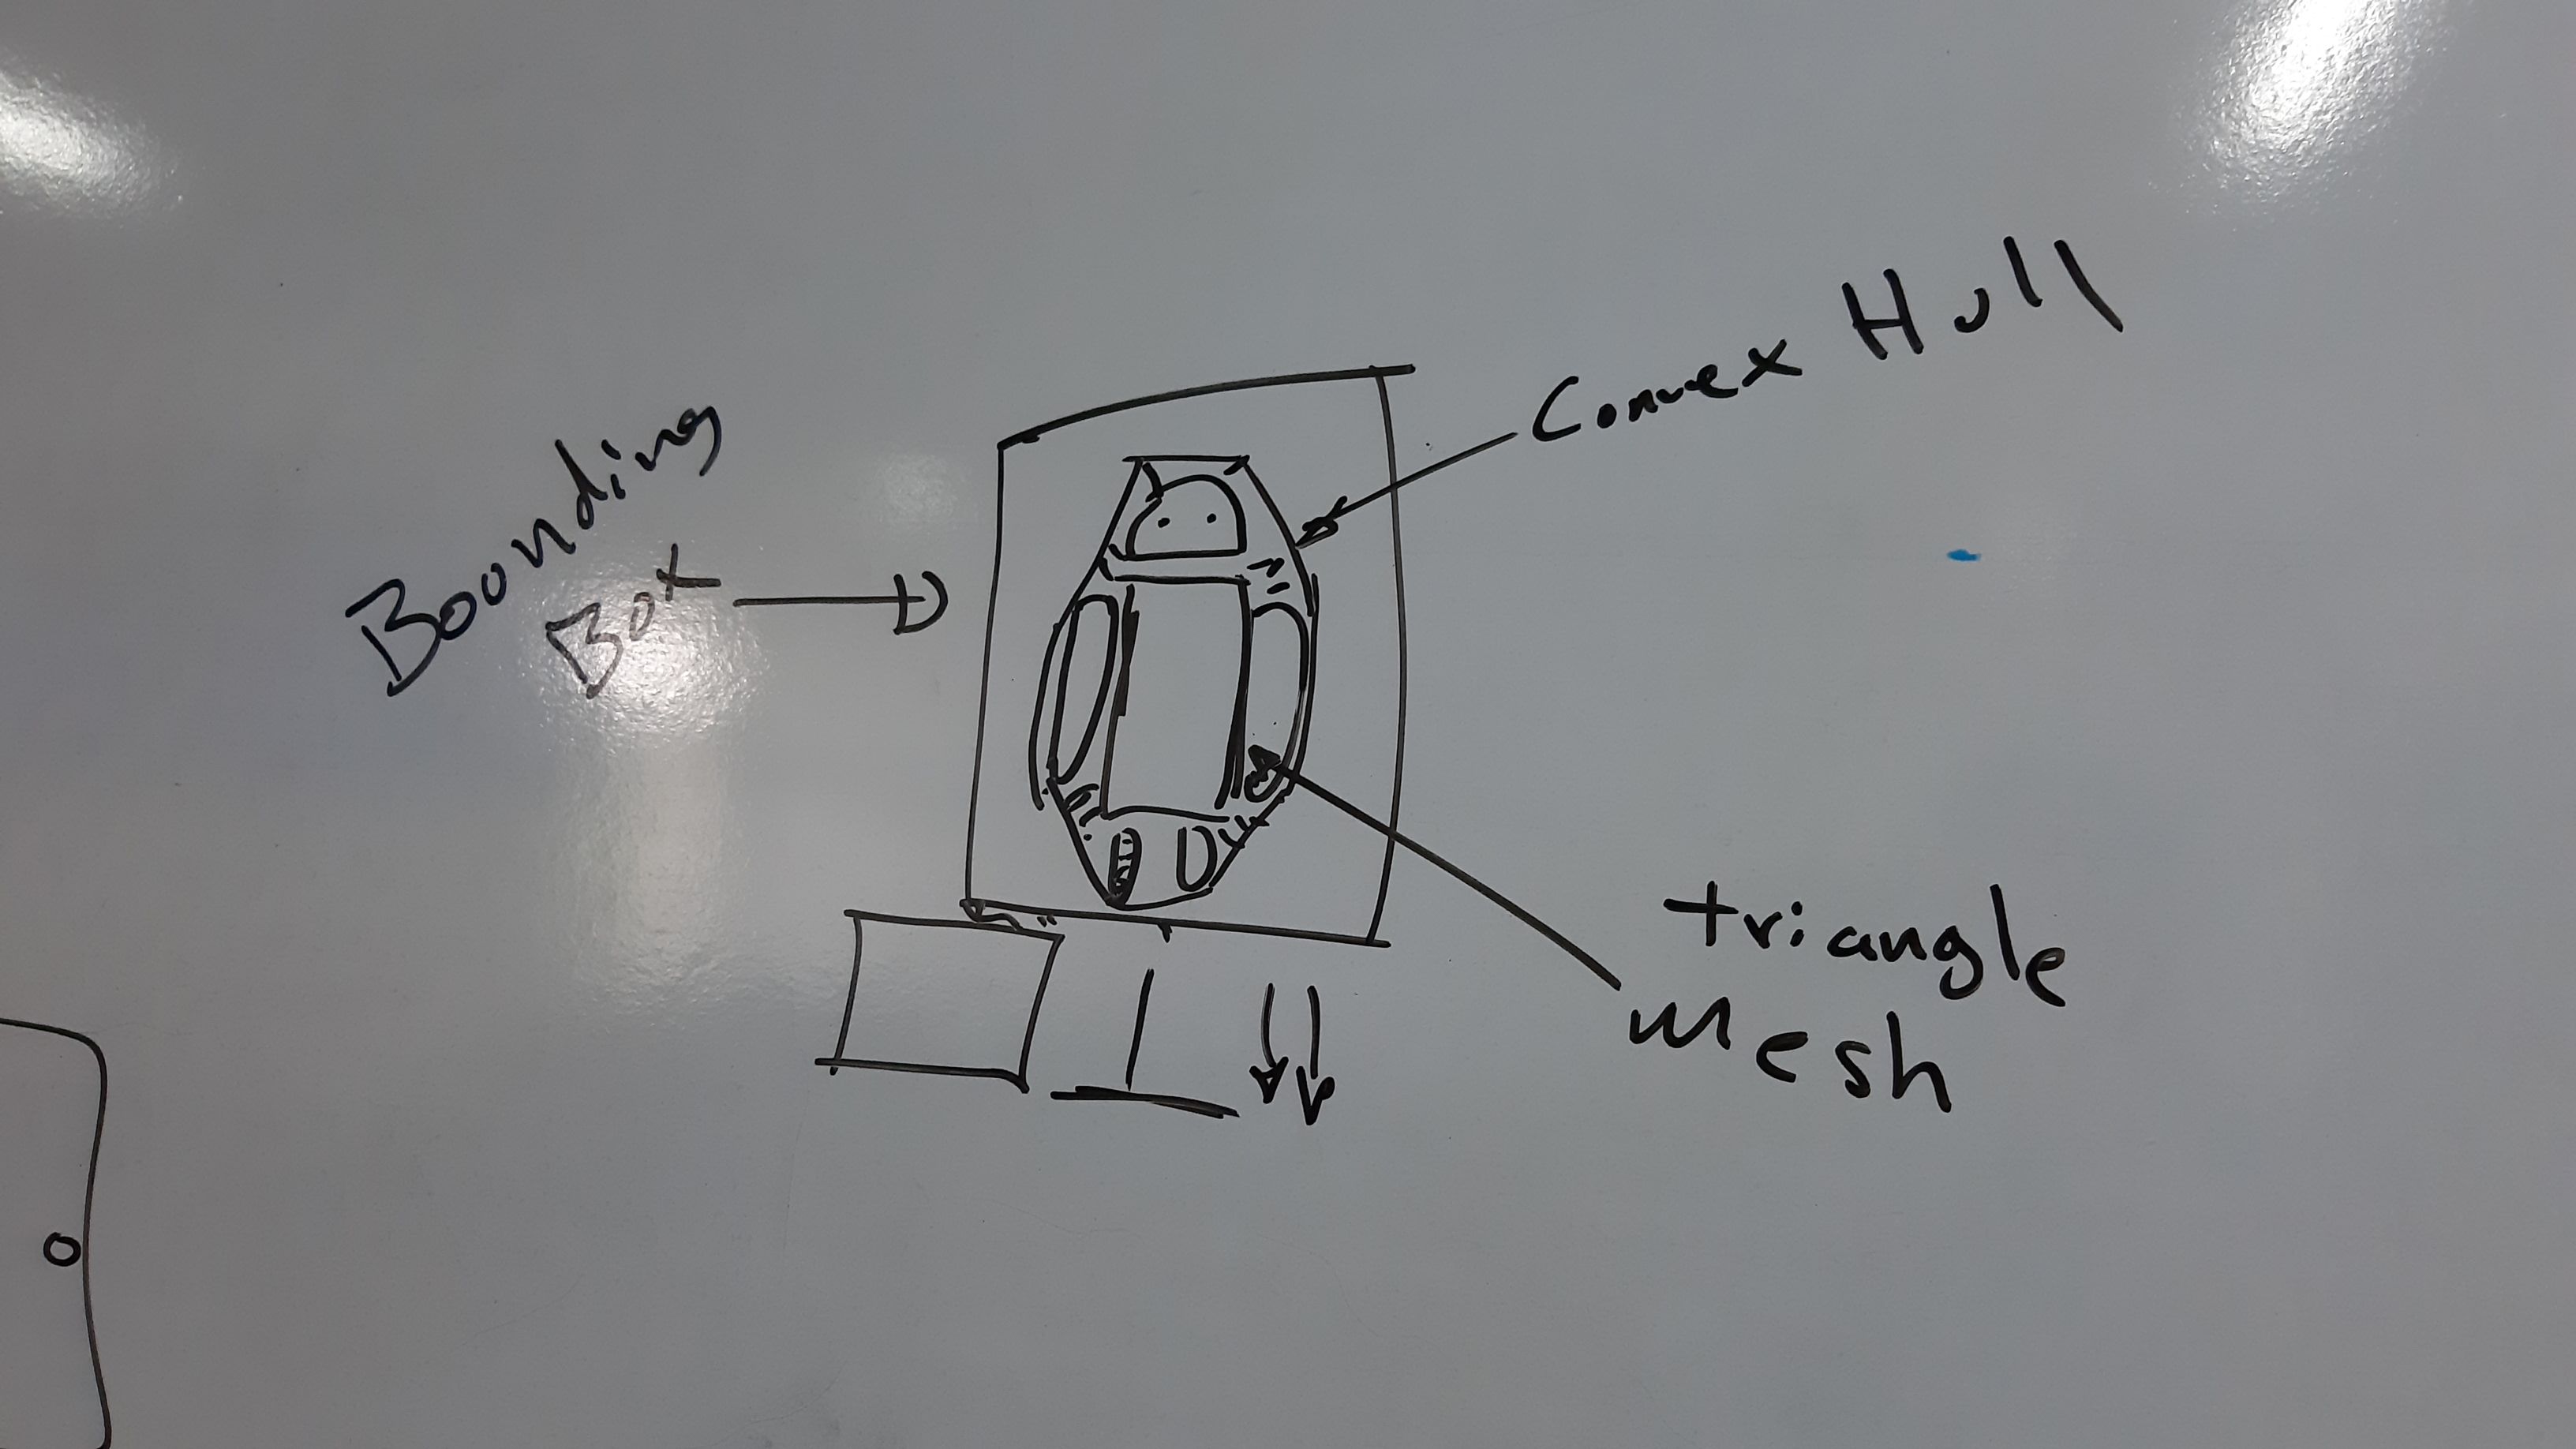 Bounding
Box
Convex Hull
triangle
mesh